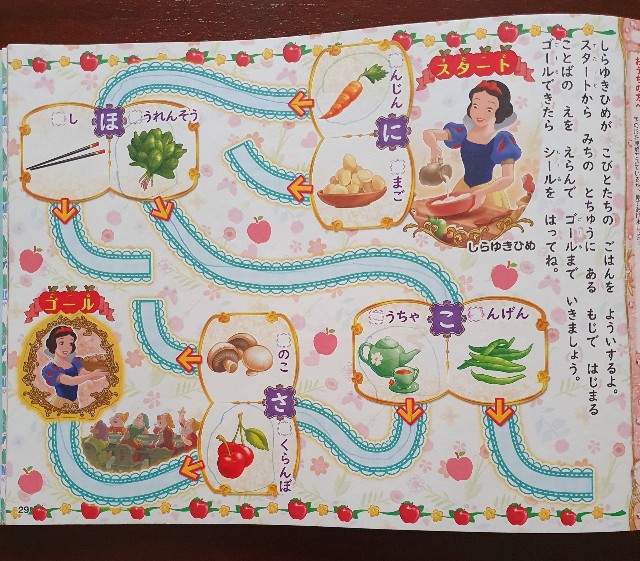 しらゆきひめが こびとたちの ごはんを よういするよ。
スタートから みちの とちゅうに ある もじで はじまる
ことばの えを えらんで ゴールまで いきましょう。
ゴールできたら シールを はってね。
スタート
しらゆきひめ
に
んじん
まご
ほ
うれんそう
し
こ
んげん
うちゃ
さ
のこ
くらんぼ
ゴール
29